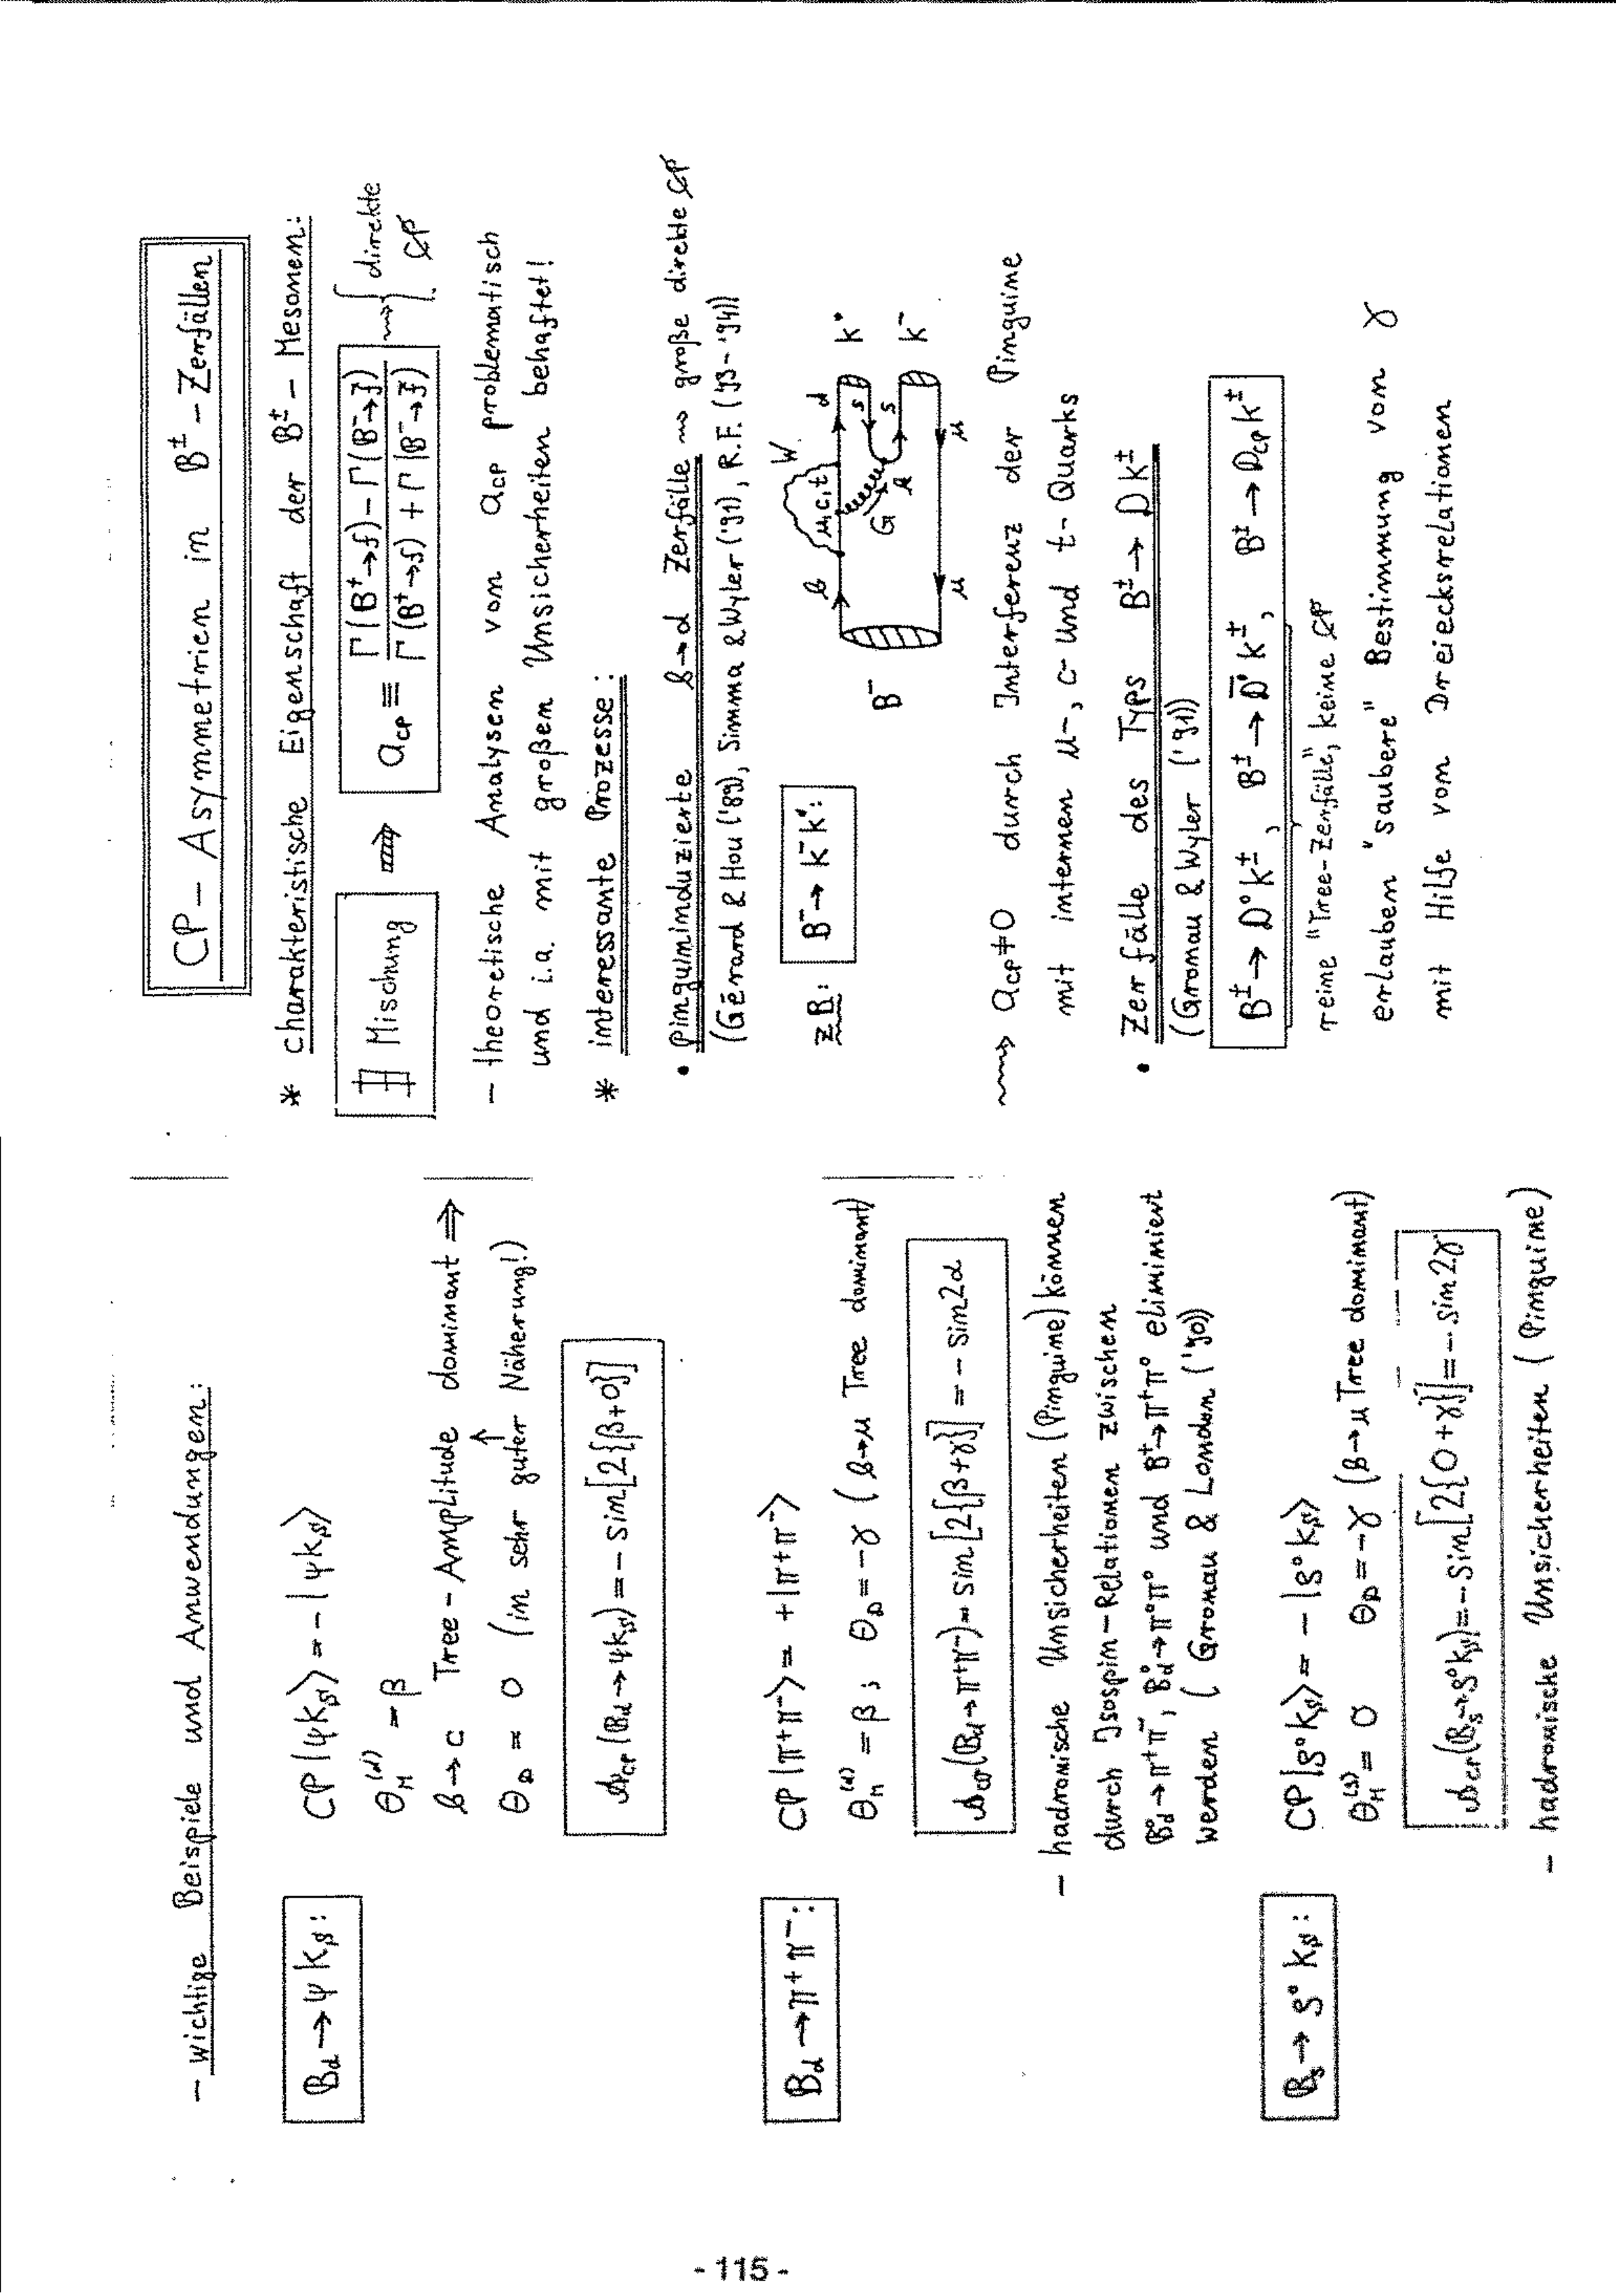 - Wichtige Beispiele und Anwendungen:
B_d → ψ K_S :
CP|ψK_S⟩ = -|ψK_S⟩
Θ_M^(d) = β
b → c Tree-Amplitude dominant ⇒
Θ_D = 0 (in sehr guter Näherung!)
↑
A_CP(B_d → ψK_S) = - sin[2{β+0}]
B_d → π⁺π⁻ :
CP|π⁺π⁻⟩ = +|π⁺π⁻⟩
Θ_M^(d) = β ; Θ_D = -γ (b→u Tree dominant)
A_CP(B_d → π⁺π⁻) = sin[2{β+γ}] = - sin2α
- hadronische Unsicherheiten (Pinguine) können
durch Isospin-Relationen zwischen
B⁰_d → π⁺π⁻, B⁰_d → π⁰π⁰ und B⁺ → π⁺π⁰ eliminiert
werden (Gronau & London ('90))
B_s → ρ⁰ K_S :
CP|ρ⁰K_S⟩ = -|ρ⁰K_S⟩
Θ_M^(s) = 0 Θ_D = -γ (b→u Tree dominant)
A_CP(B_s → ρ⁰K_S) = - sin[2{0+γ}] = - sin2γ
- hadronische Unsicherheiten (Pinguine)
CP - Asymmetrien in B^± - Zerfällen
* charakteristische Eigenschaft der B^± - Mesonen:
∄ Mischung ⇒ a_CP ≡ [Γ(B⁺→f) - Γ(B⁻→f̄)] / [Γ(B⁺→f) + Γ(B⁻→f̄)] ⇝ { direkte
C̸P̸
- theoretische Analysen von a_CP problematisch
und i.a. mit großen Unsicherheiten behaftet!
* interessante Prozesse:
• pinguininduzierte b→d Zerfälle ⇝ große direkte C̸P̸
(Gérard & Hou ('89), Simma & Wyler ('91), R.F. ('93-'94))
z.B.: B⁻ → K⁻K⁰:
B⁻ b u,c,t W d K⁰
G k s s K⁻
u u
⇝ a_CP ≠ 0 durch Interferenz der Pinguine
mit internen u-, c- und t-Quarks
• Zerfälle des Typs B^± → D K^±
(Gronau & Wyler ('91))
B^± → D⁰K^±, B^± → D̄⁰K^±, B^± → D_CP K^±
reine "Tree-Zerfälle", keine C̸P̸
erlauben "saubere" Bestimmung von γ
mit Hilfe von Dreiecksrelationen
- 115 -